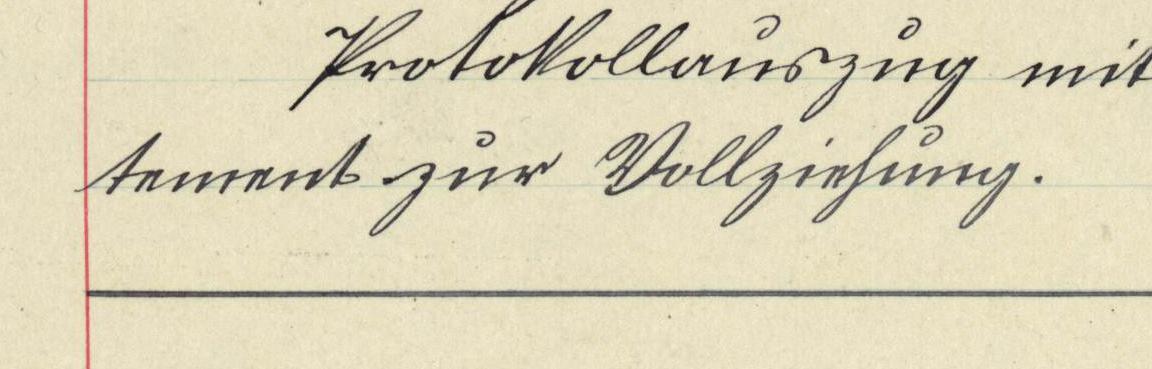 Protokollauszug mit
tement zur Vollziehung.